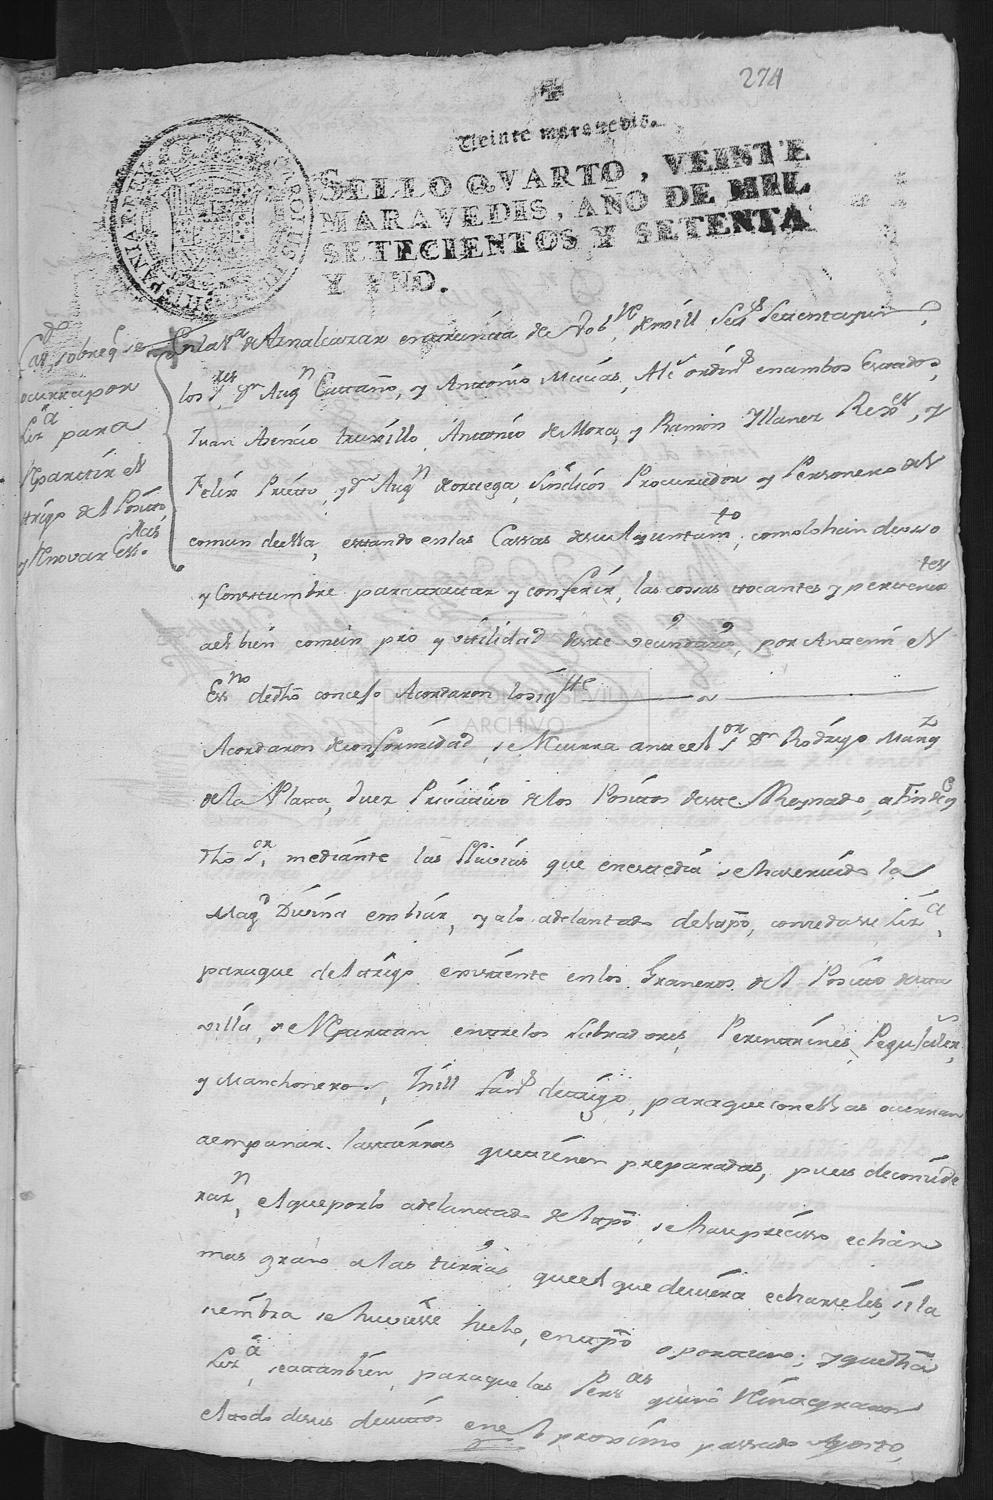 274
Veinte maravedis.
SELLO QVARTO, VEINTE
MARAVEDIS, AÑO DE MIL
SETECIENTOS Y SETENTA
Y VNO.
Cavdo sobre q se
ocurra por
Lizª para
Repartir el
trigo del Pósito
y Renovar Essas
En la Vª de Aznalcazar en treinta de Nobre de mill Setts Setenta y un
los Sres Dn Augn Cattaño, y Antonio Macias, Alcs ordins en ambos Estados,
Juan Asencio truxillo, Antonio de Mora, y Ramon Yllanes Rexres, y
Felix Prieto, y Dn Augn de ortega, Sindicos Procurador y Personero del
comun de ella, estando en las Cassas de su Ayuntamto, como lo han de usso
y Costumbre para tratar y conferir, las cossas tocantes y pertenecientes
a el bien comun pro y utilidad de este vecindario, por Antemi el
Essno de dho concejo Acordaron lo sigte
DIPUTACION SEVILLA
ARCHIVO
Acordaron de conformidad, se ocurra ante el Sor Dn Rodrigo Marqz
de la Plata, Juez Privativo de los Positos de este Reynado, a fin de q
dho Sor, mediante las lluvias que en este dia se ha servido la
Magd Divina embiar, y a lo adelantado del tpo, conceda su Lizª,
para que del trigo existente en los Graneros del Posito de esta
villa, se Repartan entre los Labradores, Perentrines, Pegujaleros,
y Manchoneros, mill fans de trigo, para que con ellas ocurran
a empanar las tierras que tienen preparadas, pues de conside
rarn, el que por lo adelantado del tpo, se hase presisso echar
mas grano a las tierras, que el que deviera echarseles, si la
siembra se huviesse hecho, en tpo oportuno; y que dha
Lizª, sea tambien, para que las Persas quienes Reintegraron
el todo de sus devitos en el proximo passado Agosto,